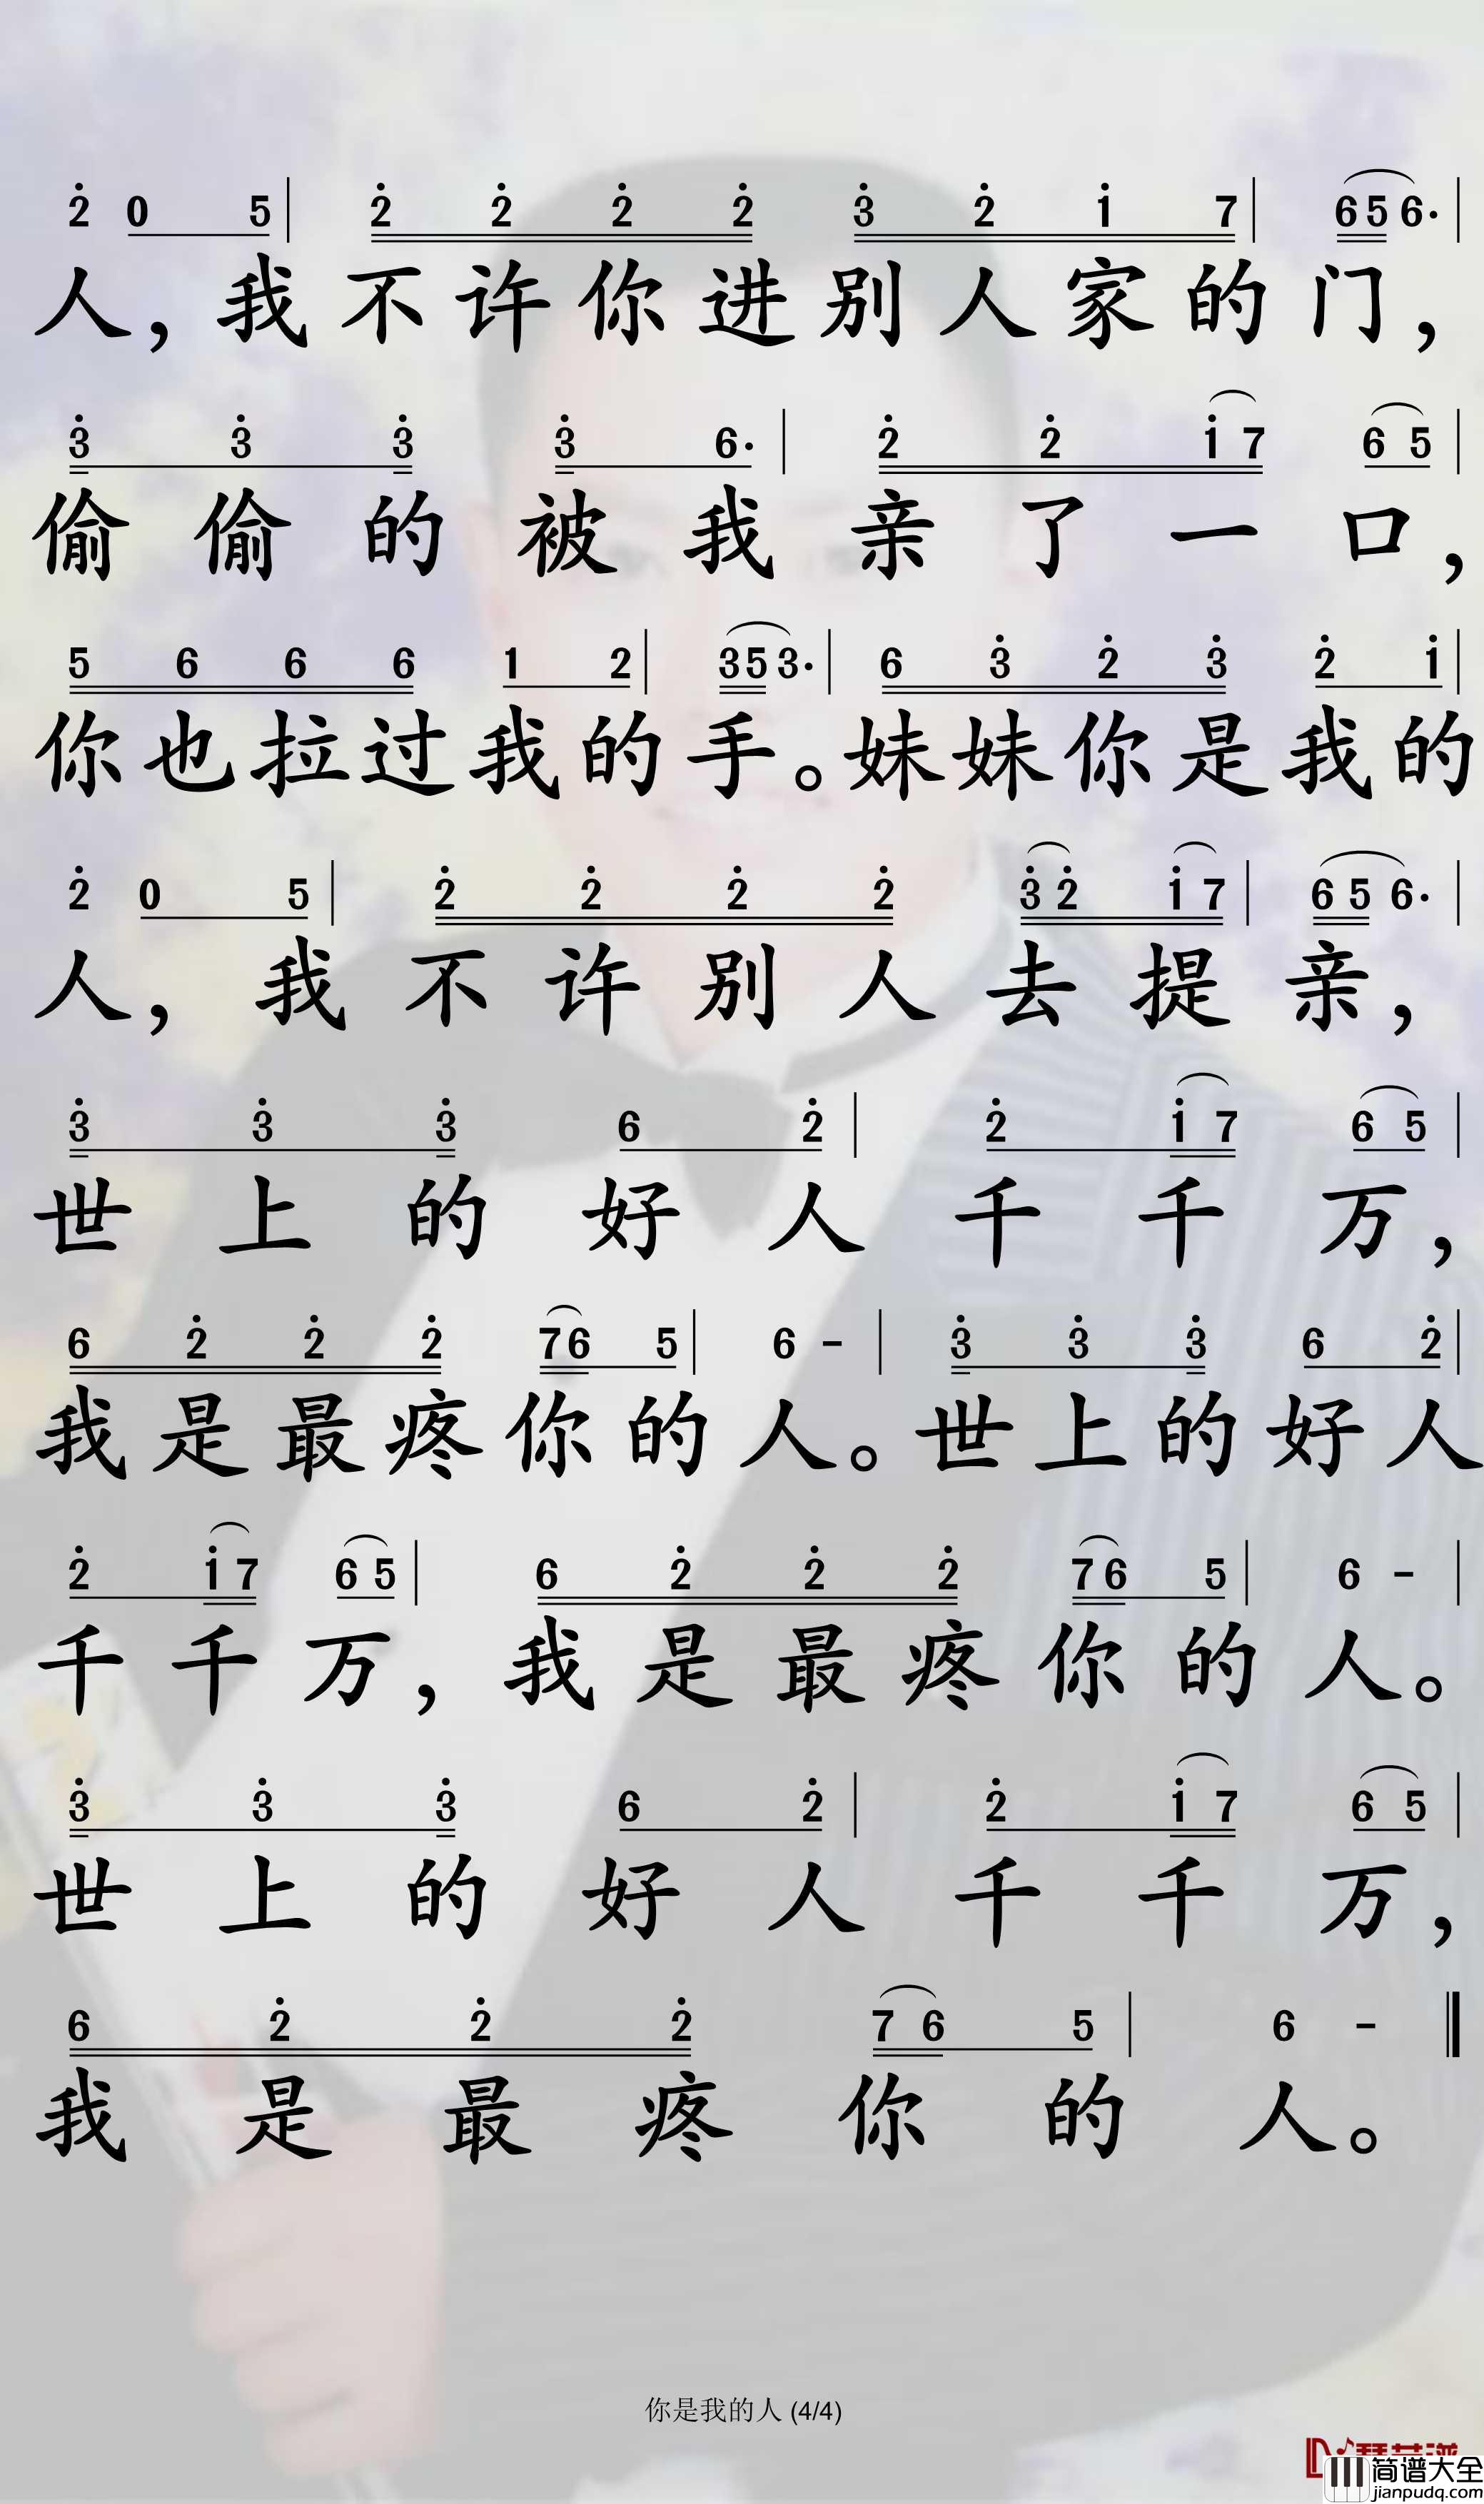 2̇ 0 5 | 2̇ 2̇ 2̇ 2̇ 3̇ 2̇ 1̇ 7 | 6 5 6· |
人，我不许你进别人家的门，
3̇ 3̇ 3̇ 3̇ 6· | 2̇ 2̇ 1̇ 7 6 5 |
偷偷的被我亲了一口，
5 6 6 6 1 2 | 3 5 3· | 6 3̇ 2̇ 3̇ 2̇ 1̇ |
你也拉过我的手。妹妹你是我的
2̇ 0 5 | 2̇ 2̇ 2̇ 2̇ 3̇ 2̇ 1̇ 7 | 6 5 6· |
人，我不许别人去提亲，
3̇ 3̇ 3̇ 6 2̇ | 2̇ 1̇ 7 6 5 |
世上的好人千千万，
6 2̇ 2̇ 2̇ 7 6 5 | 6 - | 3̇ 3̇ 3̇ 6 2̇ |
我是最疼你的人。世上的好人
2̇ 1̇ 7 6 5 | 6 2̇ 2̇ 2̇ 7 6 5 | 6 - |
千千万，我是最疼你的人。
3̇ 3̇ 3̇ 6 2̇ | 2̇ 1̇ 7 6 5 |
世上的好人千千万，
6 2̇ 2̇ 2̇ 7 6 5 | 6 - ‖
我是最疼你的人。
你是我的人 (4/4)
简谱大全
jianpudq.com